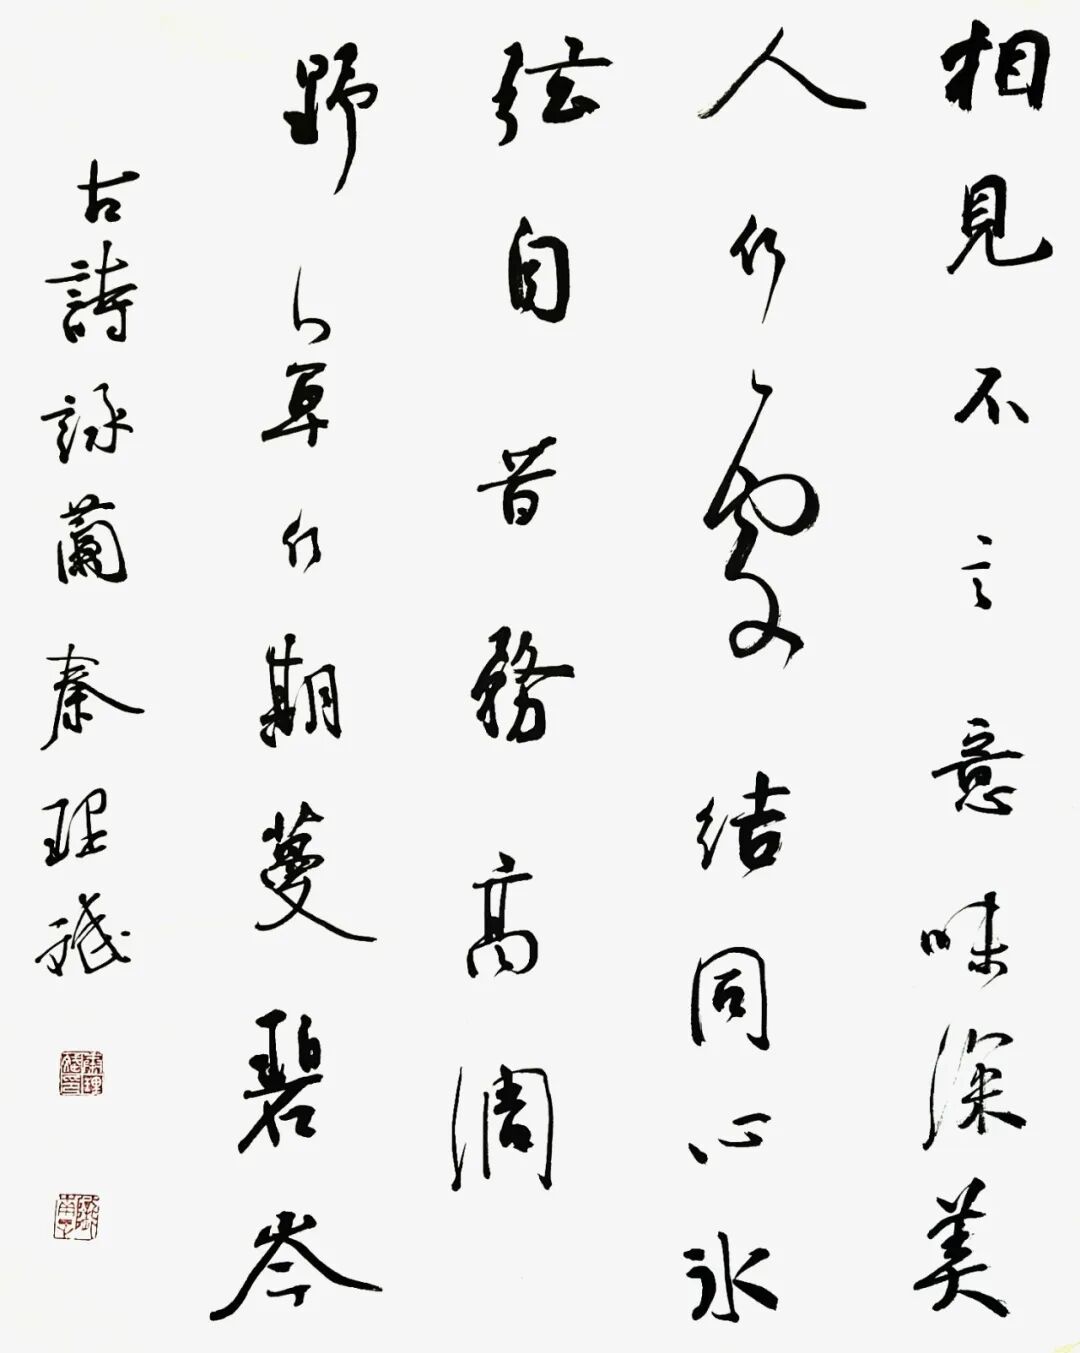 相見不言意味深美
人何處結同心冰
弦自昔務高調
野草何期蔓碧岑
古詩詠蘭秦理